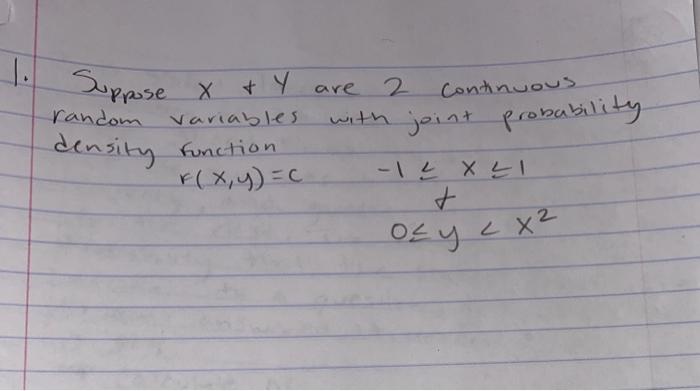 1. Suppose X + Y are 2 continuous
random variables with joint probability
density function
f(x,y)=c -1 ≤ x ≤ 1
+
0≤ y < x²